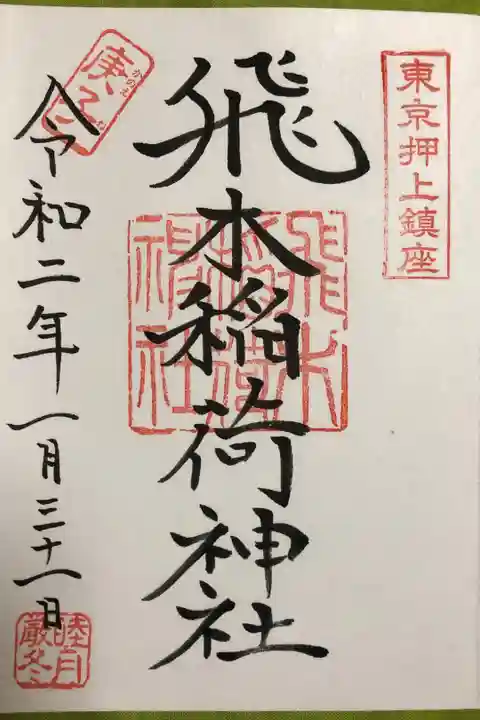 東京押上鎮座
飛木稲荷神社
飛木
稲荷
神社
庚子
かのえ
令和二年一月三十一日
睦月
厳冬